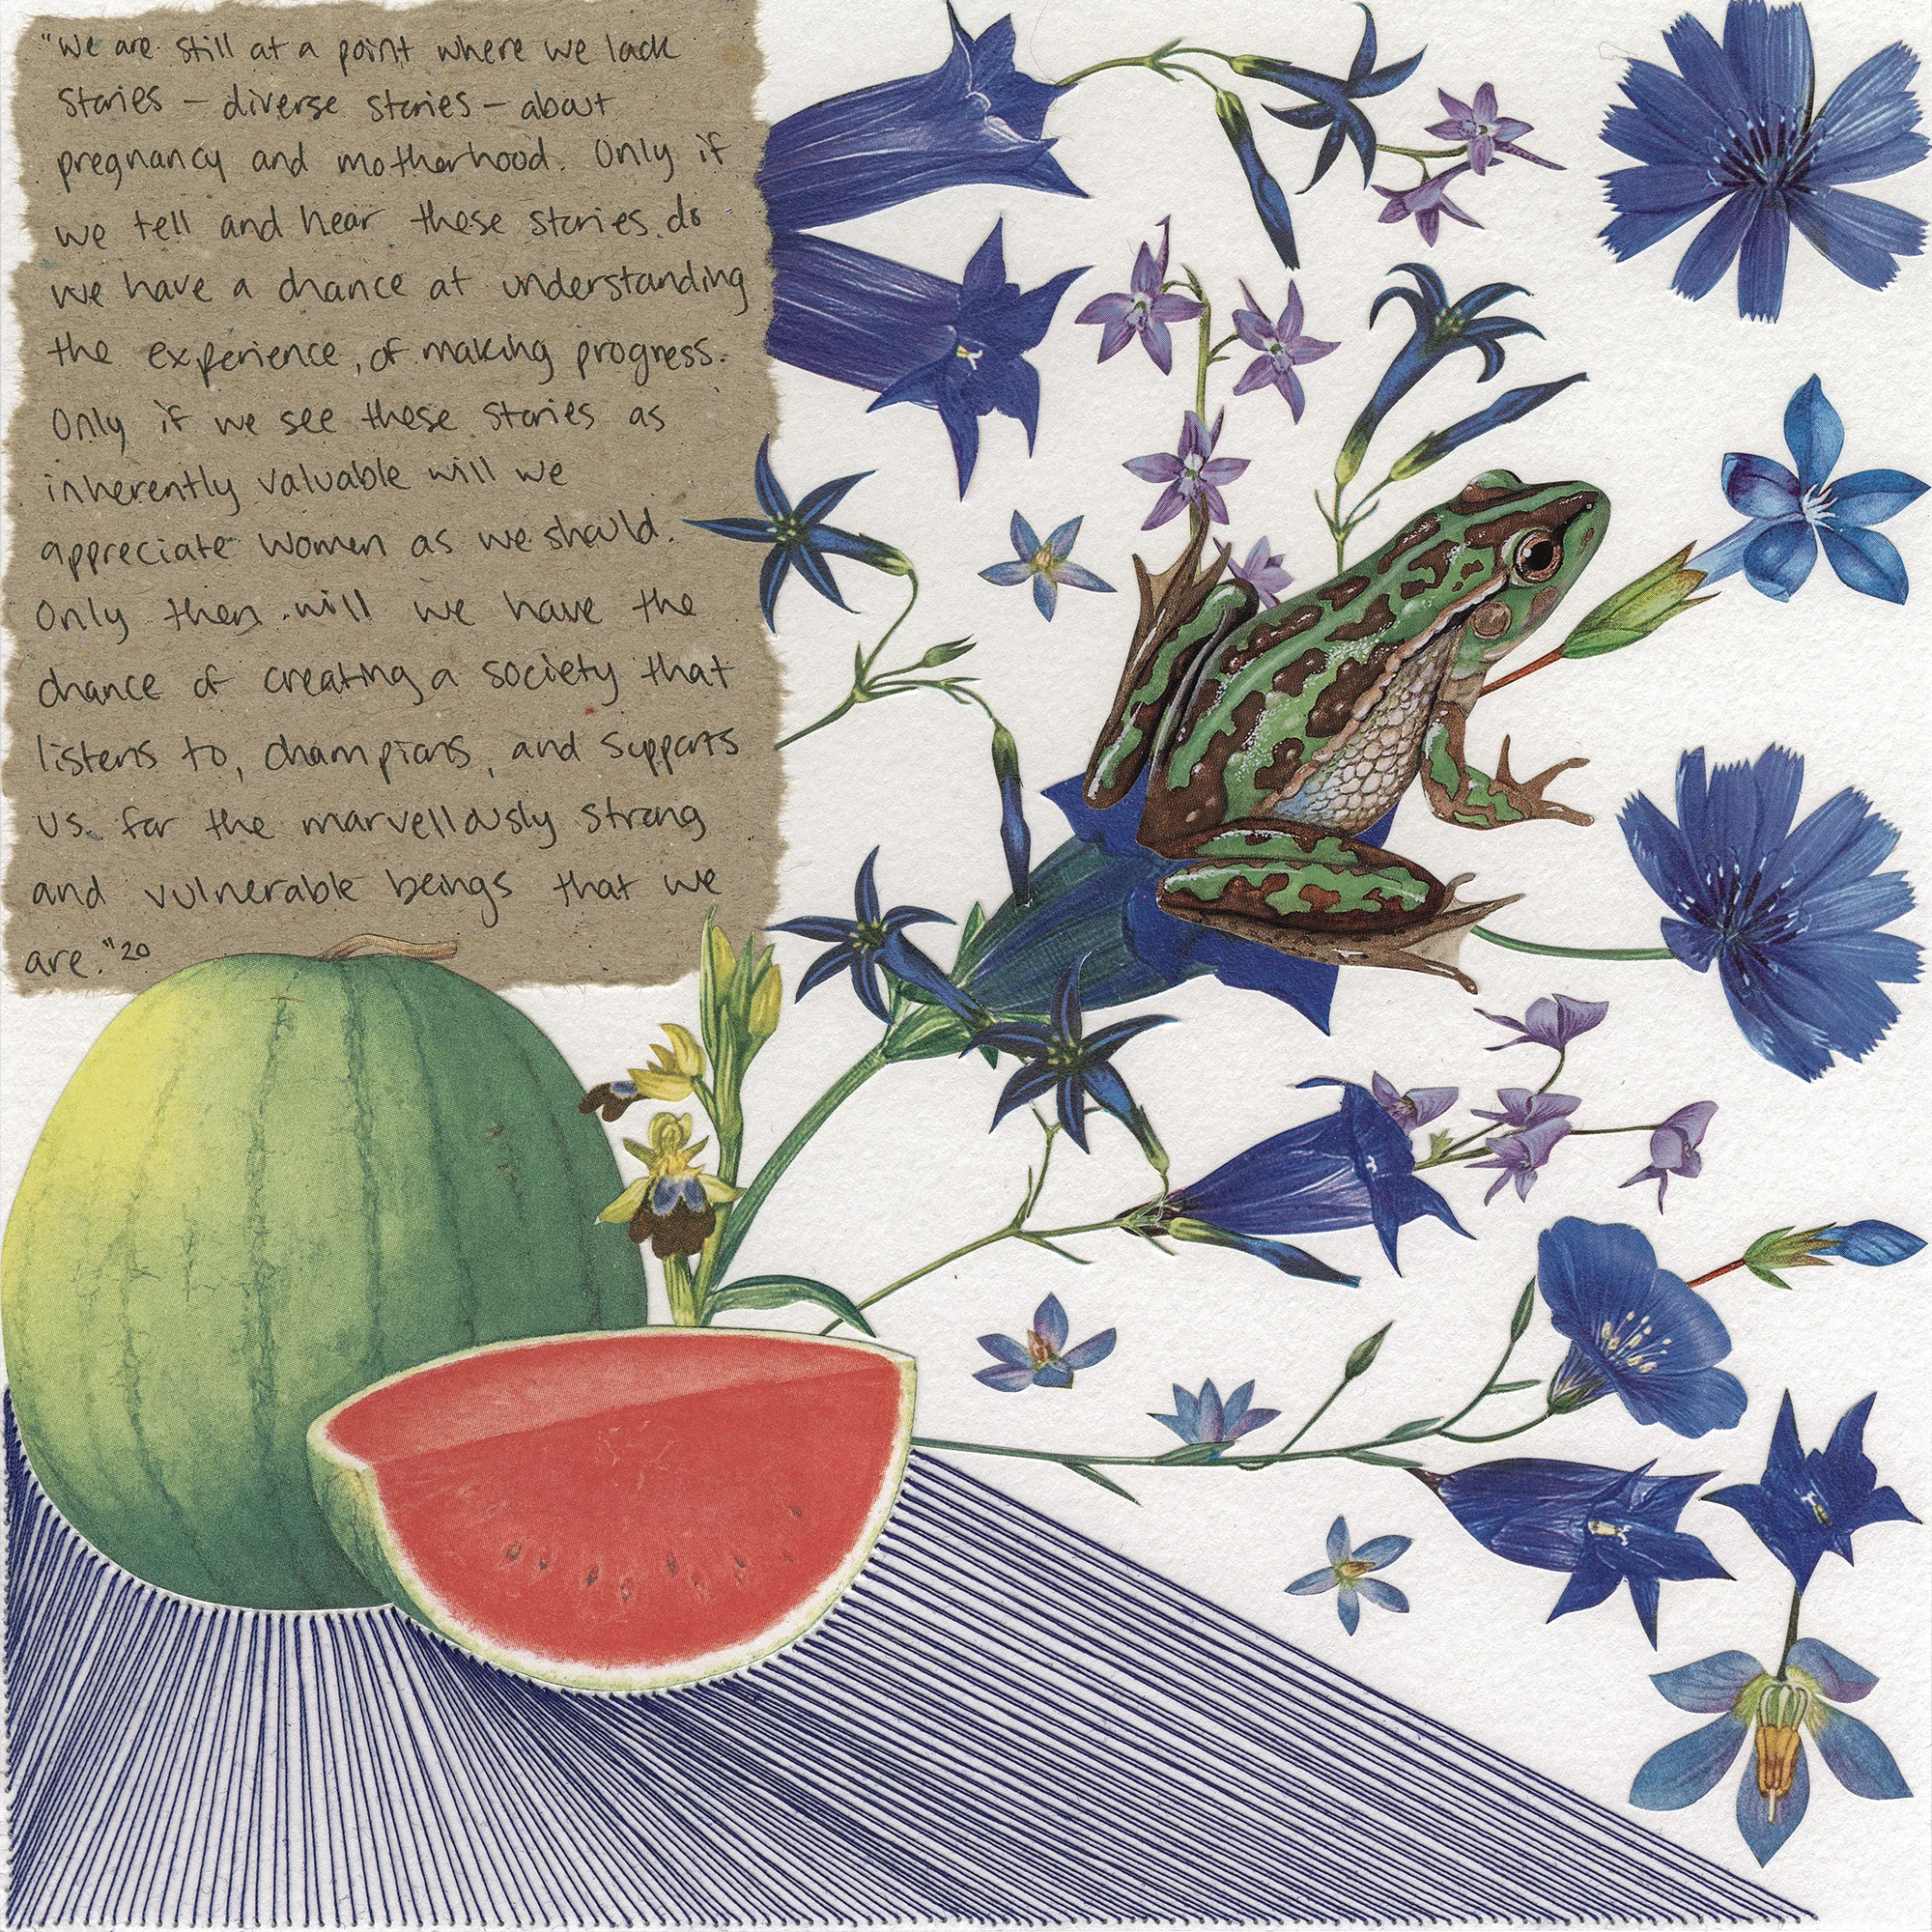 "We are still at a point where we lack
stories - diverse stories - about
pregnancy and motherhood. Only if
we tell and hear these stories do
we have a chance at understanding
the experience, of making progress.
Only if we see these stories as
inherently valuable will we
appreciate women as we should.
Only then will we have the
chance of creating a society that
listens to, champions, and supports
us for the marvellously strong
and vulnerable beings that we
are."20